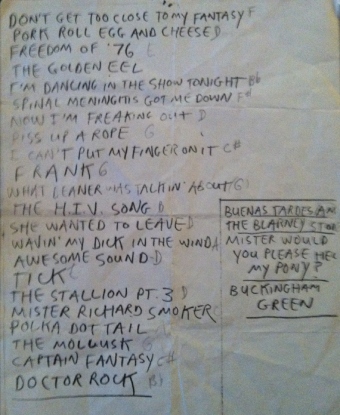 DON'T GET TOO CLOSE TO MY FANTASY F
PORK ROLL EGG AND CHEESE D
FREEDOM OF '76 E
THE GOLDEN EEL
I'M DANCING IN THE SHOW TONIGHT Bb
SPINAL MENINGITIS GOT ME DOWN F#
NOW I'M FREAKING OUT D
PISS UP A ROPE G
I CAN'T PUT MY FINGER ON IT C#
FRANK G
WHAT DEANER WAS TALKIN' ABOUT G
THE H.I.V. SONG
SHE WANTED TO LEAVE D
WAVIN' MY DICK IN THE WIND A
AWESOME SOUND D
TICK
THE STALLION PT. 3 D
MISTER RICHARD SMOKER
POLKA DOT TAIL
THE MOLLUSK
CAPTAIN FANTASY C#
DOCTOR ROCK
BUENAS TARDES AM
THE BLARNEY STO
MISTER WOULD
YOU PLEASE HEL
MY PONY?
BUCKINGHAM
GREEN